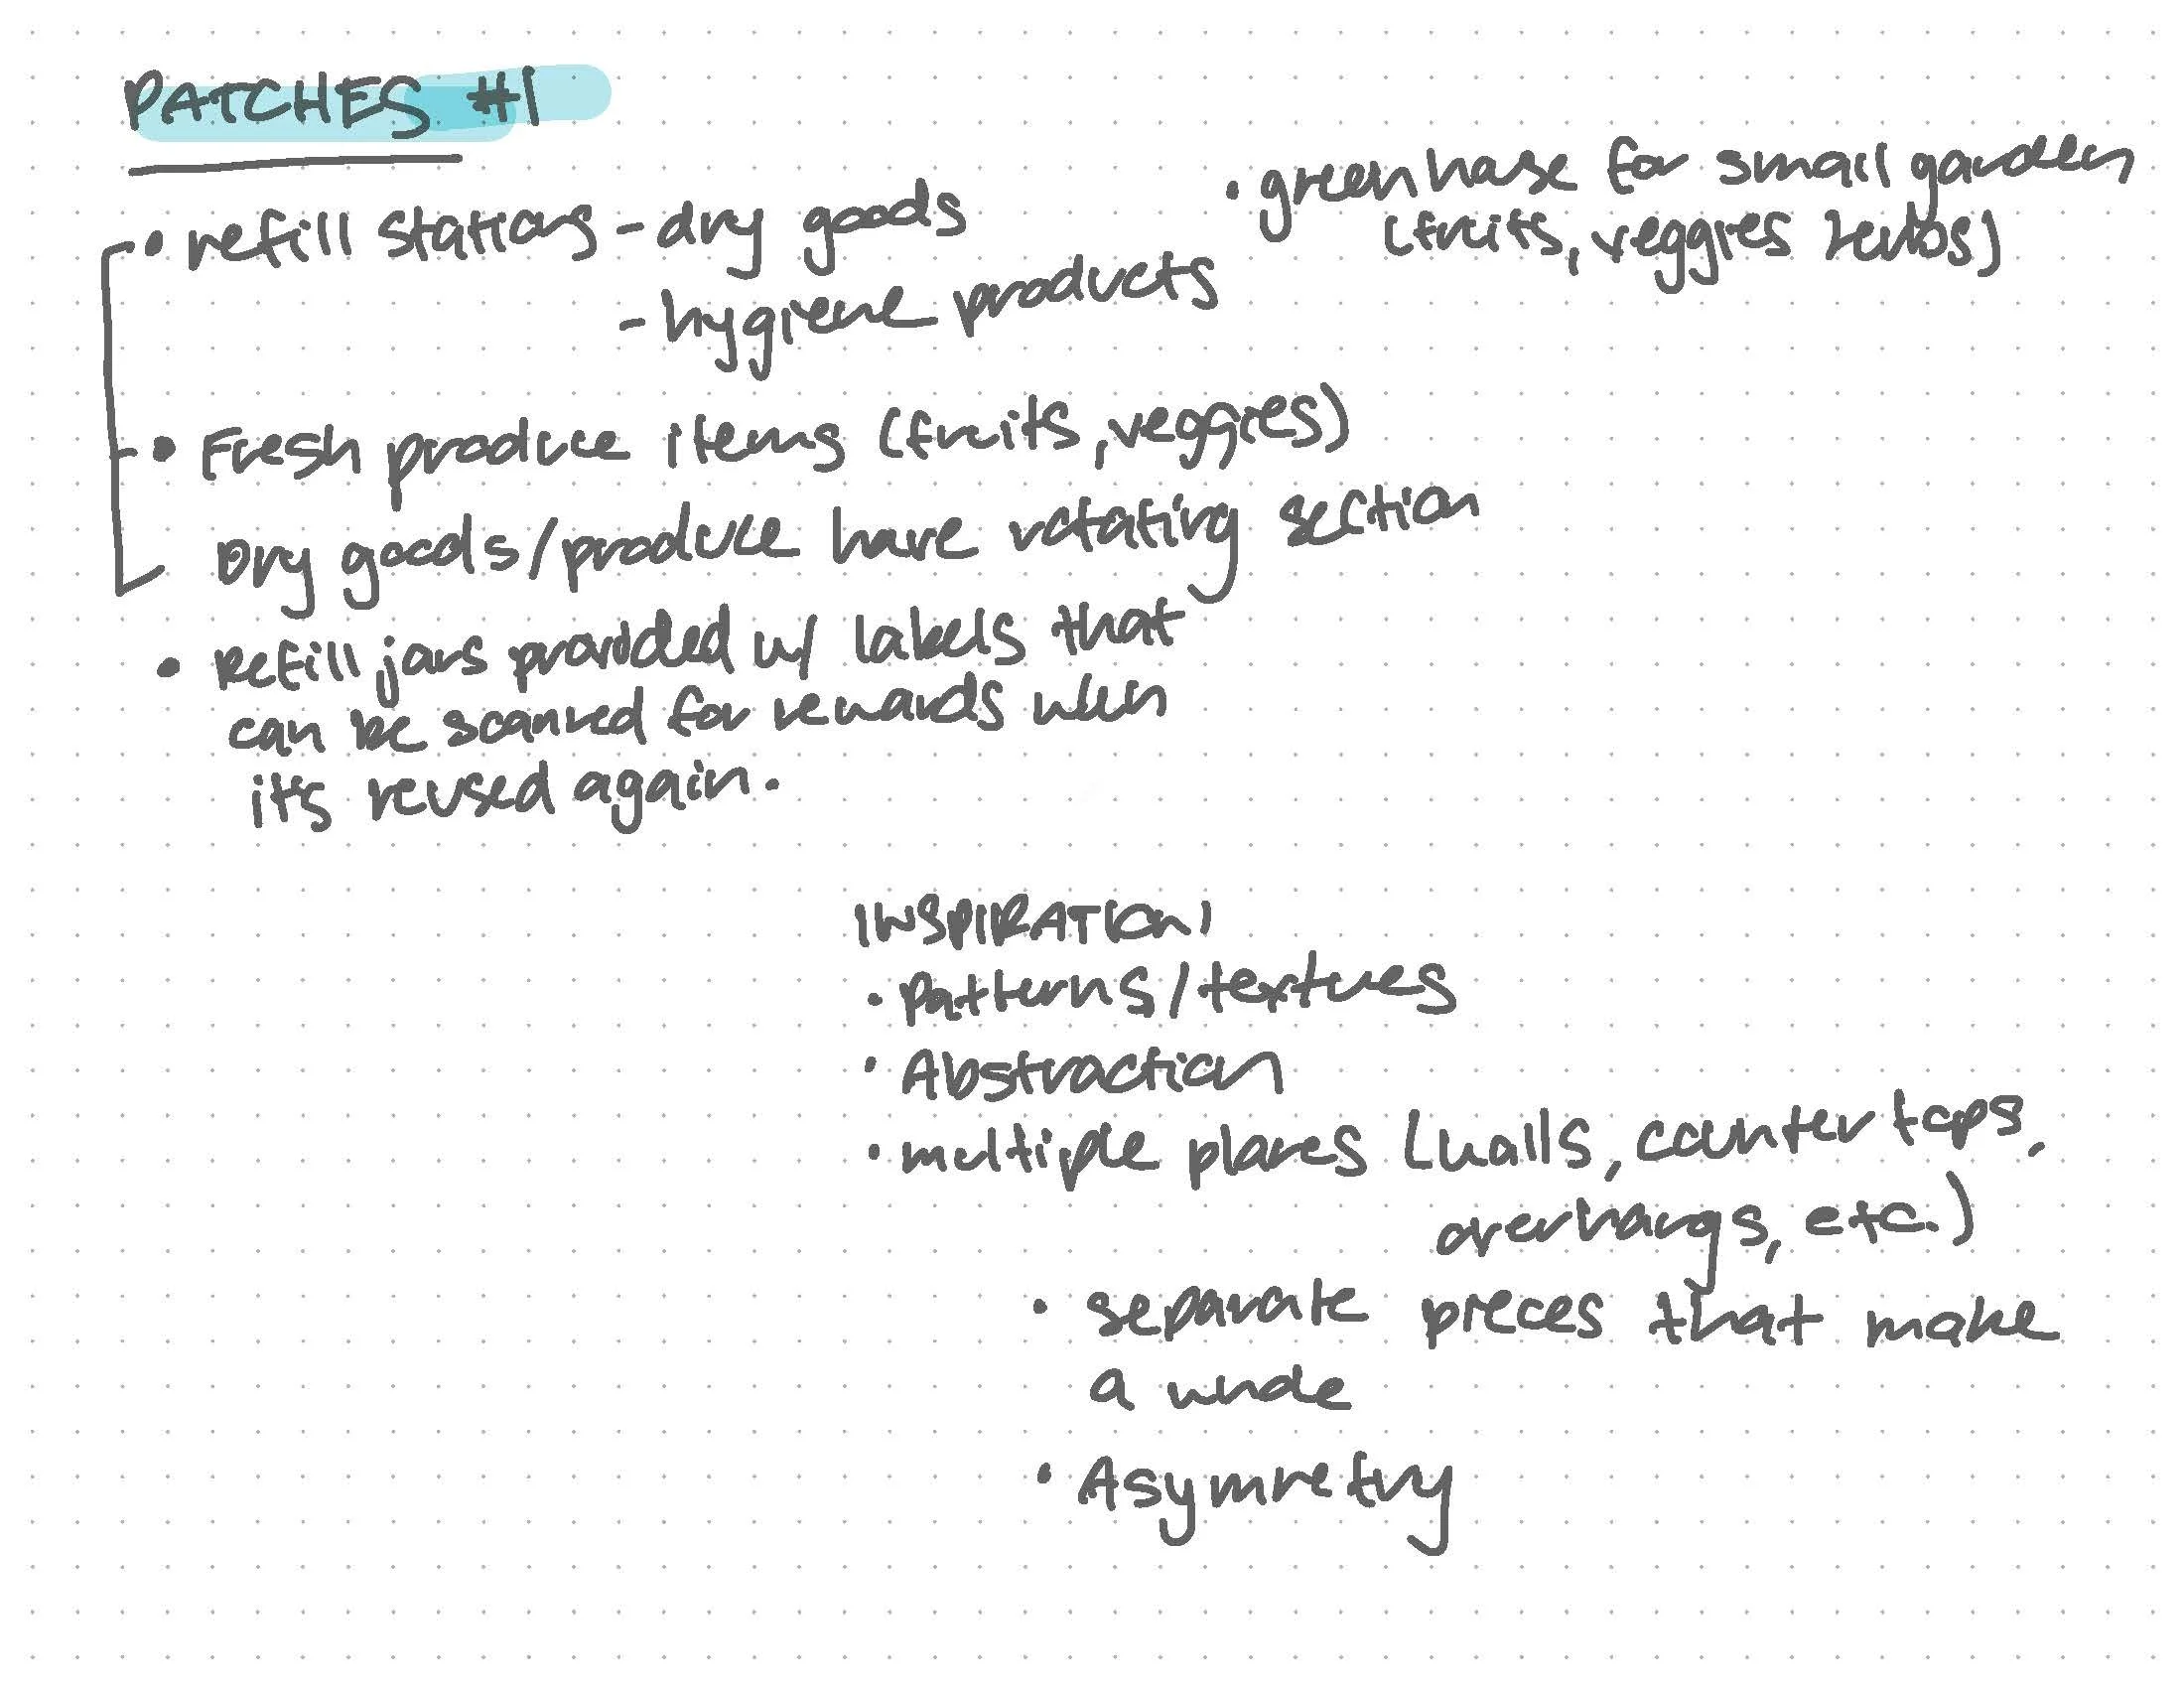 PATCHES #1
• refill stations - dry goods
- hygiene products
• greenhouse for small garden
(fruits, veggies herbs)
• Fresh produce items (fruits, veggies)
Dry goods/produce have rotating section
• Refill jars provided w/ labels that
can be scanned for rewards when
it's reused again.
INSPIRATION
• Patterns/textures
• Abstraction
• multiple planes (walls, counter tops,
overhangs, etc.)
• separate pieces that make
a whole
• Asymmetry